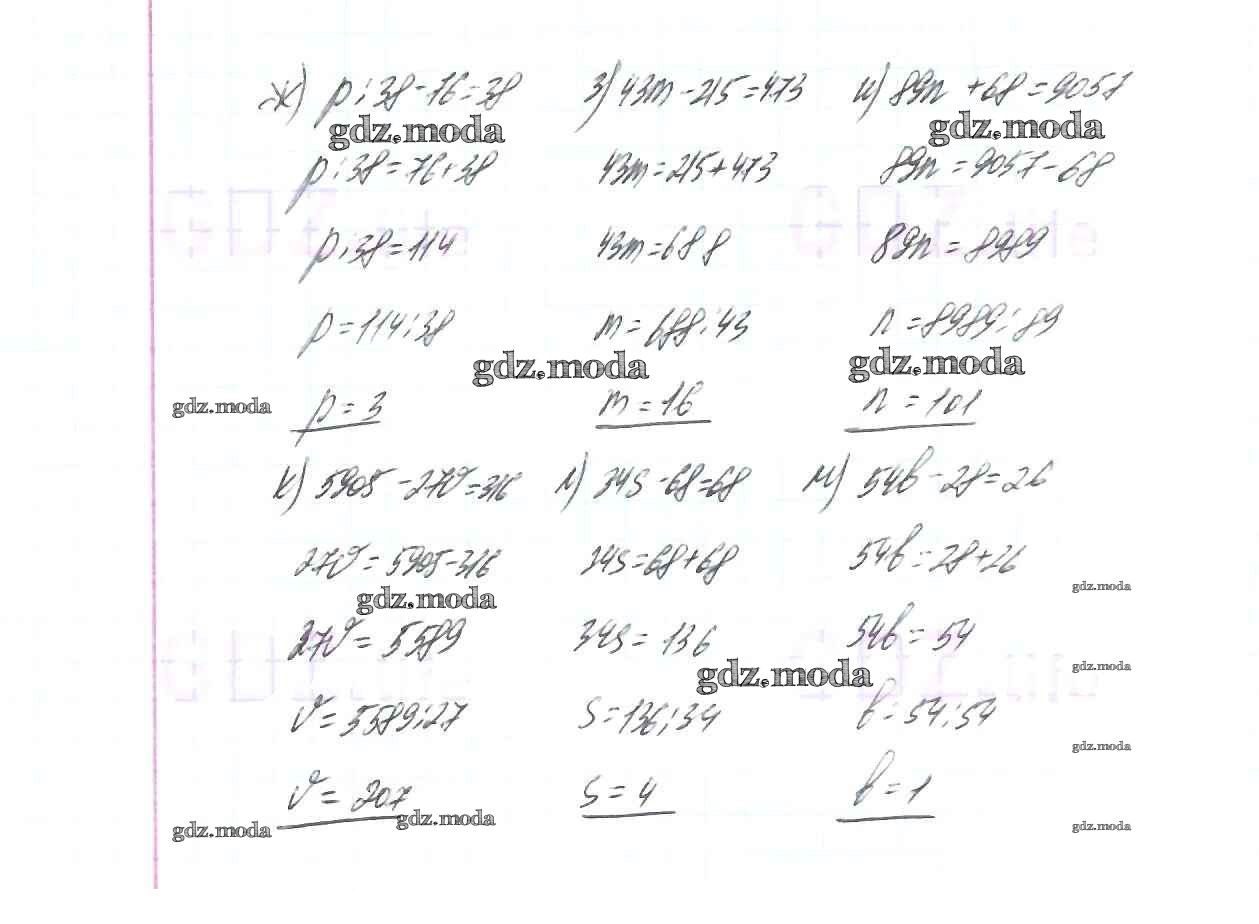 ж) p : 38 - 76 = 38
з) 43m - 215 = 473
и) 89n + 68 = 9057
gdz.moda
gdz.moda
p : 38 = 76 + 38
43m = 215 + 473
89n = 9057 - 68
GDZ
GDZ
p : 38 = 114
43m = 688
89n = 8989
p = 114 : 38
m = 688 : 43
n = 8989 : 89
gdz.moda
gdz.moda
gdz.moda
p = 3
m = 16
n = 101
к) 5905 - 27v = 316
л) 34s - 68 = 68
м) 54b - 28 = 26
27v = 5905 - 316
34s = 68 + 68
54b = 28 + 26
gdz.moda
gdz.moda
27v = 5589
34s = 136
54b = 54
GDZ
GDZ
gdz.moda
gdz.moda
v = 5589 : 27
s = 136 : 34
b = 54 : 54
gdz.moda
v = 207
s = 4
b = 1
gdz.moda
gdz.moda
gdz.moda